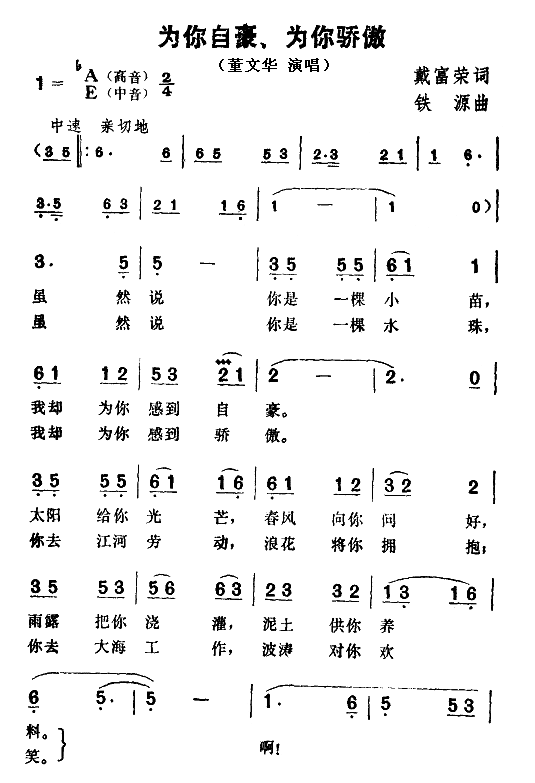 为你自豪、为你骄傲
（董文华 演唱）
1＝ ♭A（高音） E（中音） 2/4
戴富荣词
铁 源曲
中速 亲切地
（3 5 ‖: 6· 6 | 6 5 5 3 | 2·3 2 1 | 1 6· |
3·5 6 3 | 2 1 1 6 | 1 － | 1 0）|
3· 5 | 5 － | 3 5 5 5 | 6 1 1 |
虽 然 说 你是 一棵 小 苗，
虽 然 说 你是 一棵 水 珠，
6 1 1 2 | 5 3 2 1 | 2 － | 2· 0 |
我却 为你 感到 自 豪。
我却 为你 感到 骄 傲。
3 5 5 5 | 6 1 1 6 | 6 1 1 2 | 3 2 2 |
太阳 给你 光 芒，春风 向你 问 好，
你去 江河 劳 动，浪花 将你 拥 抱；
3 5 5 3 | 5 6 6 3 | 2 3 3 2 | 1 3 1 6 |
雨露 把你 浇 灌，泥土 供你 养
你去 大海 工 作，波涛 对你 欢
6 5· | 5 － | 1· 6 | 5 5 3 |
料。
笑。
啊！